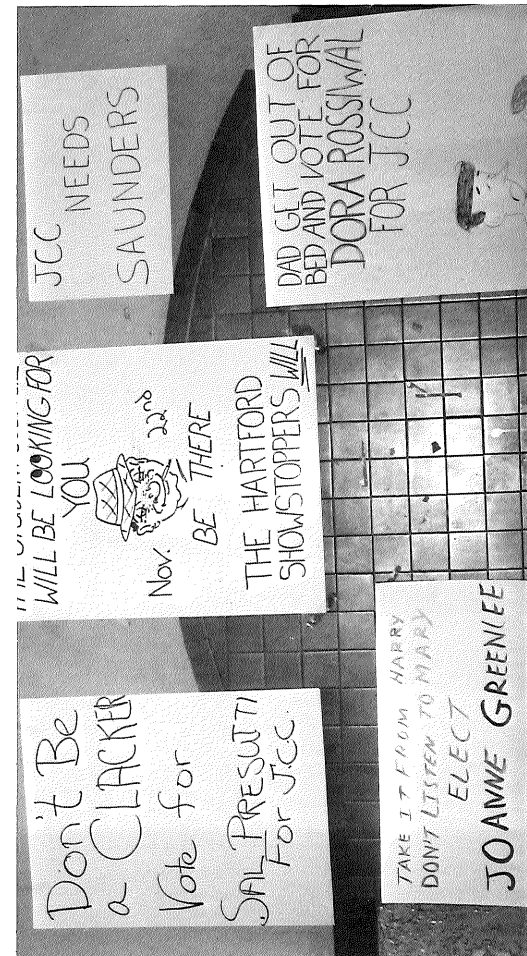 Don't Be
a CLACKER
Vote for
SAL PRESUTTI
For J.C.C.
WILL BE LOOKING FOR
YOU
Nov. 22nd
BE THERE
THE HARTFORD
SHOWSTOPPERS WILL
JCC NEEDS
SAUNDERS
TAKE IT FROM HARRY
DON'T LISTEN TO MARY
ELECT
JOANNE GREENLEE
DAD GET OUT OF
BED AND VOTE FOR
DORA ROSSIWAL
FOR JCC